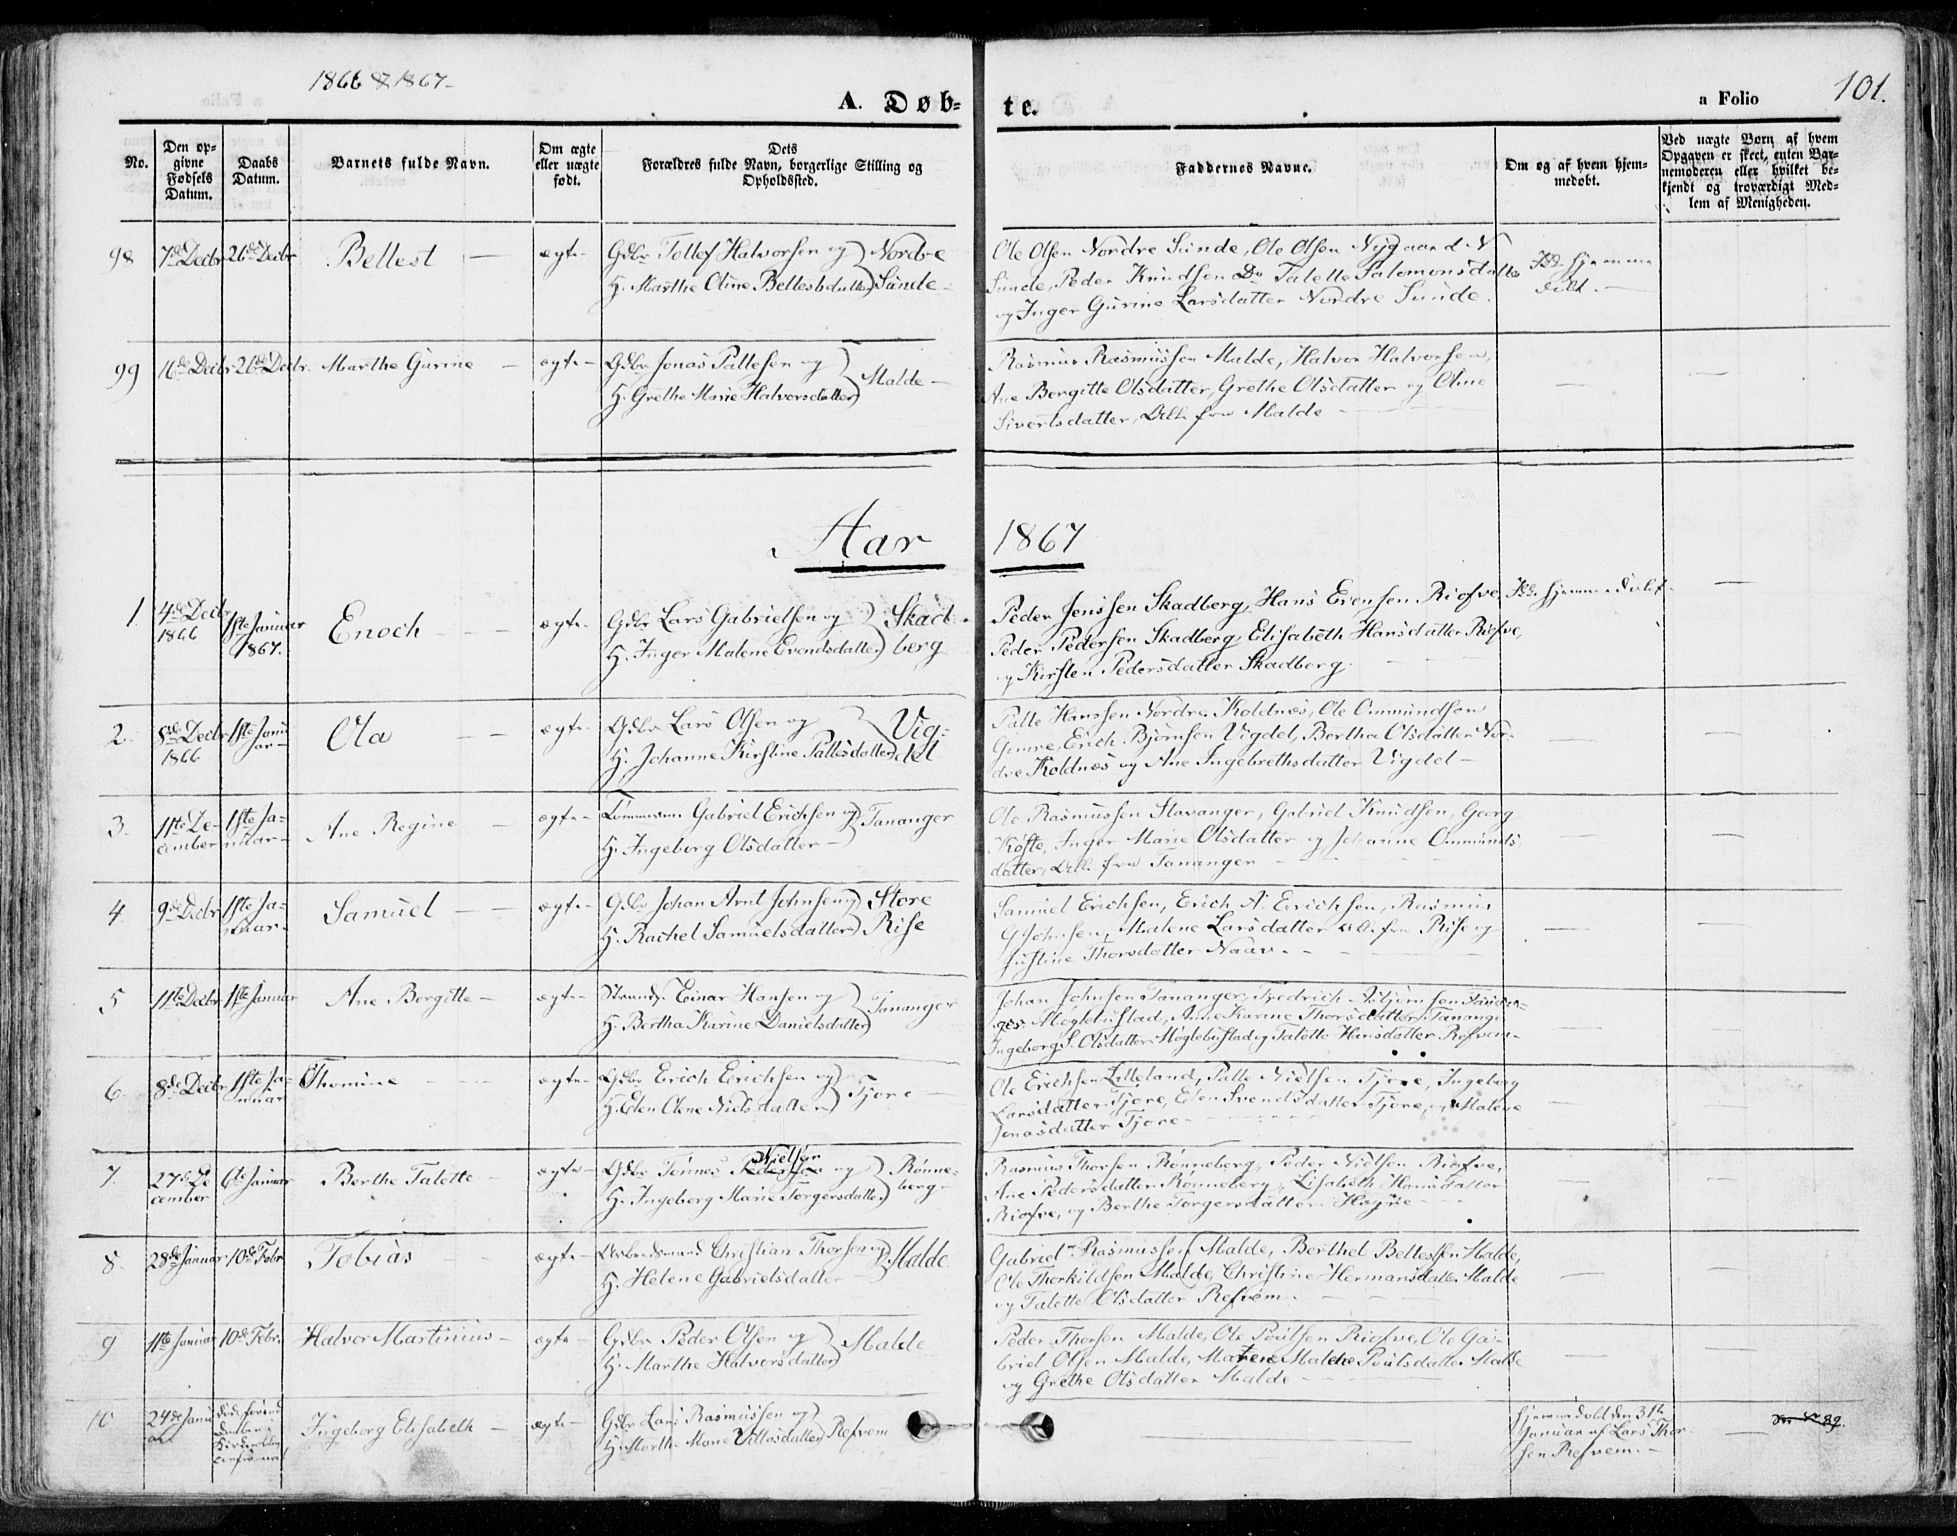 1866 & 1867.
A. Døb-
te.
a Folio
101.
No.
Den op-
givne
Fødsels
Datum.
Daabs
Datum.
Barnets fulde Navn.
Om ægte
eller uægte
født.
Dets
Forældres fulde Navn, borgerlige Stilling og
Opholdssted.
Faddernes Navne.
Om og af hvem hjem-
medøbt.
Ved uægte Børn af hvem
Opgaven er skeet, enten Bar-
nemoderen eller hvilket be-
kjendt og troværdigt Med-
lem af Menigheden.
98 7de Decbr 26de Decbr Bellest — ægte Gdbr Tollef Halvorsen og Nordre
H. Marthe Oline Bellesdatter Sunde
Ole Olsen Nordre Sunde, Ole Olsen Nygaard N.
Sunde, Peder Knudsen Do Talette Salomonsdatter
og Inger Gurine Larsdatter Nordre Sunde.
hjemme
døbt.
99 16de Decbr 26de Decbr. Marthe Gurine — ægte Gdbr Jonas Pallesen og
H. Grethe Marie Halvorsdatter Malde
Rasmus Rasmussen Malde, Halvor Halvorsen,
Ane Bergitte Olsdatter, Grethe Olsdatter og Oline
Sivertsdatter, Alle fra Malde
Aar 1867
1 4de Decbr
1866 1ste Januar
1867. Enoch ægte Gdbr Lars Gabrielsen og Skad-
H. Inger Malene Evendsdatter berg
Peder Jenssen Skadberg, Hans Evensen Riofve,
Peder Pedersen Skadberg, Elisabeth Hansdatter Riofve,
og Kirsten Pedersdatter Skadberg.
hjemmedøbt
2. 8de Decbr
1866 1ste Janu
ar Ola ægte Gdbr Lars Olsen og Vig-
H. Johanne Kirstine Pallesdatter del
Palle Hanssen Nordre Koldnes, Ole Ommundsen
Gimre, Erich Bjørnsen Vigdel, Bertha Olsdatter Nor-
dre Koldnes og Ane Ingebrethsdatter Vigdel
3. 11te De-
cember 1ste Ja-
nuar Ane Regine ægte Tømmerm. Gabriel Erichsen og Tananger
H. Ingeborg Olsdatter
Ole Rasmussen Stavanger, Gabriel Knudsen, Georg
Køfte, Inger Marie Olsdatter og Johanne Ommunds-
datter, Alle fra Tananger
4. 9de Decbr 1ste Ja-
nuar Samuel ægte Gdbr Johan Arnt Johnsen og Store
H. Rachel Samuelsdatter Rise
Samuel Erichsen, Erich A. Erichsen, Rasmus
G. Johnsen, Malene Larsdatter Alle fra Rise og
Justine Thorsdatter Naav.
5 11te Decbr 1ste Januar Ane Bergitte ægte Strands. Einar Hansen og Tananger
H. Bertha Karine Danielsdatter
Johan Johnsen Tananger, Fredrich Asbjørnsen
Møglebustad, Anne Karine Thorsdatter Tananger
Ingeborg S. Olsdatter Møglebustad og Talette Hansdatter Refvem
6. 8de Decbr 1ste Ja-
nuar Thomine ægte Gdbr Erich Erichsen og Tjore
H. Elen Olene Nielsdatter
Ole Erichsen Lilleland, Palle Nielsen Tjore, Ingeborg
Larsdatter Tjore, Elen Svendsdatter Tjore, og Malene
Jonasdatter Tjore
7. 27de De
cember 6te Januar Berthe Talette ægte Gdbr Tønnes Nielsen og Rønne-
H. Ingeborg Marie Torgersdatter berg
Rasmus Thorsen Rønneberg, Peder Nielsen Riofve,
Ane Pedersdatter Rønneberg, Lisabeth Hansdatter
Riofve, og Berthe Torgersdatter Høgne
8. 28de Januar 10de Febr Tobias ægte Arbeidsmand Christian Thorsen og Malde
H. Helene Gabrielsdatter
Gabriel Rasmussen Malde, Berthel Bellessen Malde,
Ole Thorkildsen Malde, Christine Hermansdatter Malde
og Talette Olsdatter Refvem.
9 11te Januar 10de Febr. Halvor Martinius ægte Gdbr Peder Olsen og Malde
H. Marthe Halvorsdatter
Peder Thorsen Malde, Ole Poulsen Riofve, Ole Ga-
briel Olsen Malde, Poulsdatter Malde
og Grethe Olsdatter Malde
10 24de Janu
ar Ingeborg Elisabeth ægte Gdbr Lars Rasmussen og Refvem
H. Marthe Marie Villasdatter
hjemmedøbt den 31te
Januar af Lars Thor-
sen Refvem.
No 89.